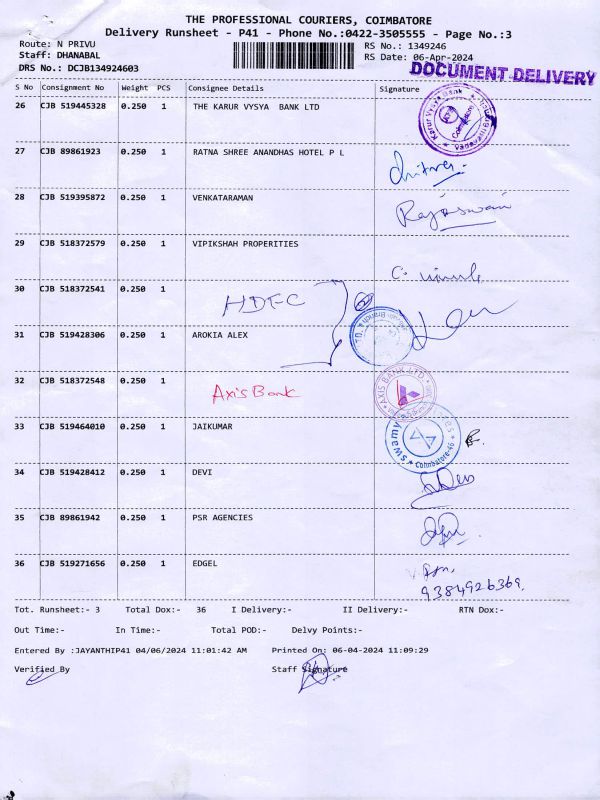 THE PROFESSIONAL COURIERS, COIMBATORE
Delivery Runsheet - P41 - Phone No.:0422-3505555 - Page No.:3
Route: N PRIVU RS No.: 1349246
Staff: DHANABAL RS Date: 06-Apr-2024
DRS No.: DCJB134924603 DOCUMENT DELIVERY
S No Consignment No Weight PCS Consignee Details Signature
26 CJB 519445328 0.250 1 THE KARUR VYSYA BANK LTD
Karur Vysya Bank
27 CJB 89861923 0.250 1 RATNA SHREE ANANDHAS HOTEL P L
28 CJB 519395872 0.250 1 VENKATARAMAN
29 CJB 518372579 0.250 1 VIPIKSHAH PROPERITIES
30 CJB 518372541 0.250 1 HDFC
31 CJB 519428306 0.250 1 AROKIA ALEX
32 CJB 518372548 0.250 1 Axis Bank AXIS BANK LTD.
33 CJB 519464010 0.250 1 JAIKUMAR
swamy Coimbatore-46
34 CJB 519428412 0.250 1 DEVI
35 CJB 89861942 0.250 1 PSR AGENCIES
36 CJB 519271656 0.250 1 EDGEL
9384926369.
Tot. Runsheet:- 3 Total Dox:- 36 I Delivery:- II Delivery:- RTN Dox:-
Out Time:- In Time:- Total POD:- Delvy Points:-
Entered By :JAYANTHIP41 04/06/2024 11:01:42 AM Printed On: 06-04-2024 11:09:29
Verified By Staff Signature